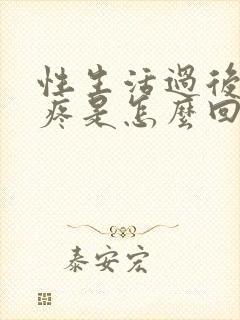 性生活過後
疼是怎麼回
泰安宏